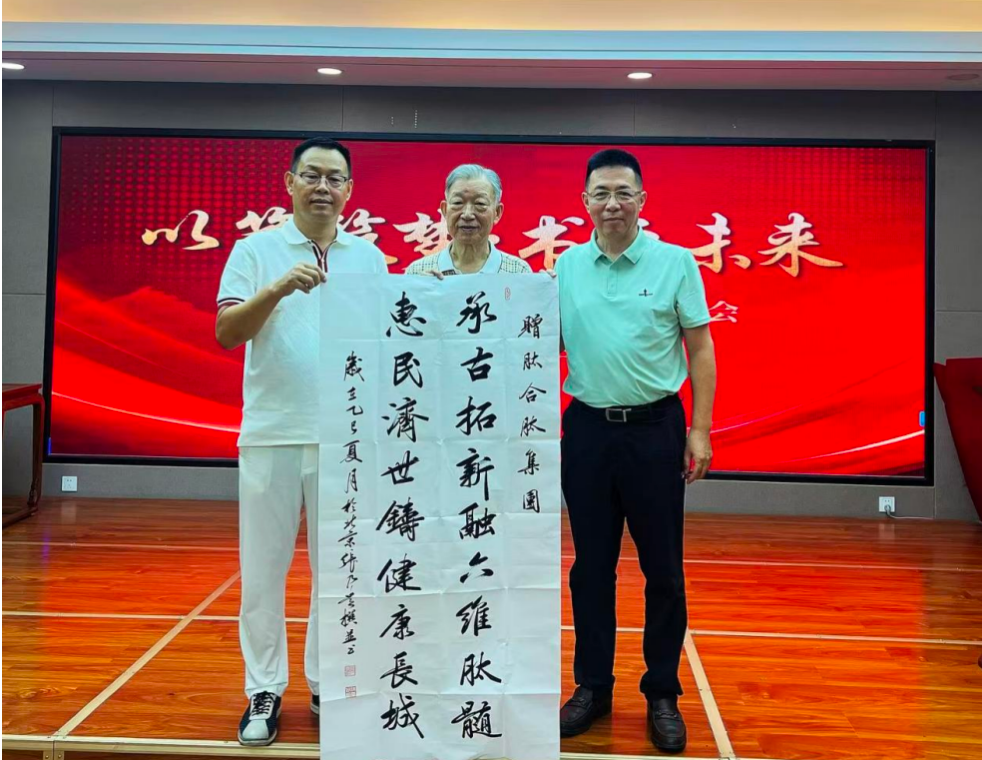 以梦书未来
会
贈肽合肽集團
承古拓新融六維肽髓
惠民濟世鑄健康長城
歲在乙巳夏月於北京張乃撰並书